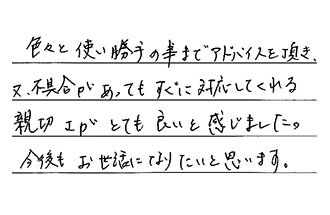 色々と使い勝手の事までアドバイスを頂き、
又、不具合があってもすぐに対応してくれる
親切さがとても良いと感じました。
今後もお世話になりたいと思います。